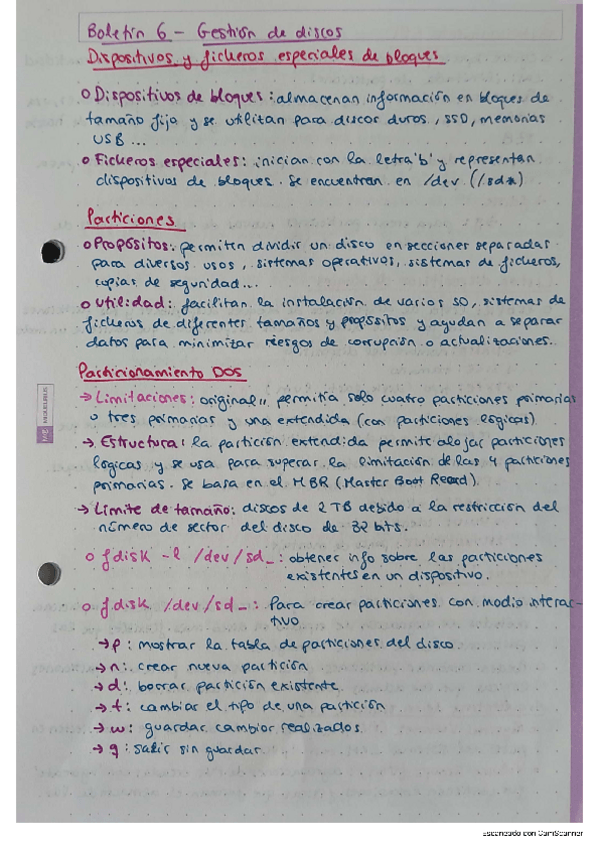 Boletín 6 - Gestión de discos
Dispositivos y ficheros especiales de bloques
o Dispositivos de bloques: almacenan información en bloques de
tamaño fijo y se utilitan para discos duros, SSD, memorias
USB ...
o Ficheros especiales: inician con la letra 'b' y representan
dispositivos de bloques. Se encuentran en /dev (/sd*)
Particiones
o Propósitos: permiten dividir un disco en secciones separadas
para diversos usos, sistemas operativos, sistemas de ficheros,
copias de seguridad...
o Utilidad: facilitan la instalación de varios SO, sistemas de
ficheros de diferentes tamaños y propósitos y ayudan a separar
datos para minimizar riesgos de corrupción o actualizaciones.
Particionamiento DOS
→ Limitaciones: original" permitía solo cuatro particiones primarias
o tres primarias y una extendida (con particiones lógicas)
→ Estructura: la partición extendida permite alojar particiones
lógicas y se usa para superar la limitación de las 4 particiones
primarias. Se basa en el MBR (Master Boot Record).
→ Límite de tamaño: discos de 2 TB debido a la restricción del
número de sector del disco de 32 bits.
o fdisk -l /dev/sd_: obtener info sobre las particiones
existentes en un dispositivo.
o fdisk /dev/sd_: Para crear particiones con modo interac-
tivo
→ p: mostrar la tabla de particiones del disco.
→ n: crear nueva partición
→ d: borrar partición existente
→ t: cambiar el tipo de una partición
→ w: guardar cambios realizados
→ q: salir sin guardar.
Escaneado con CamScanner